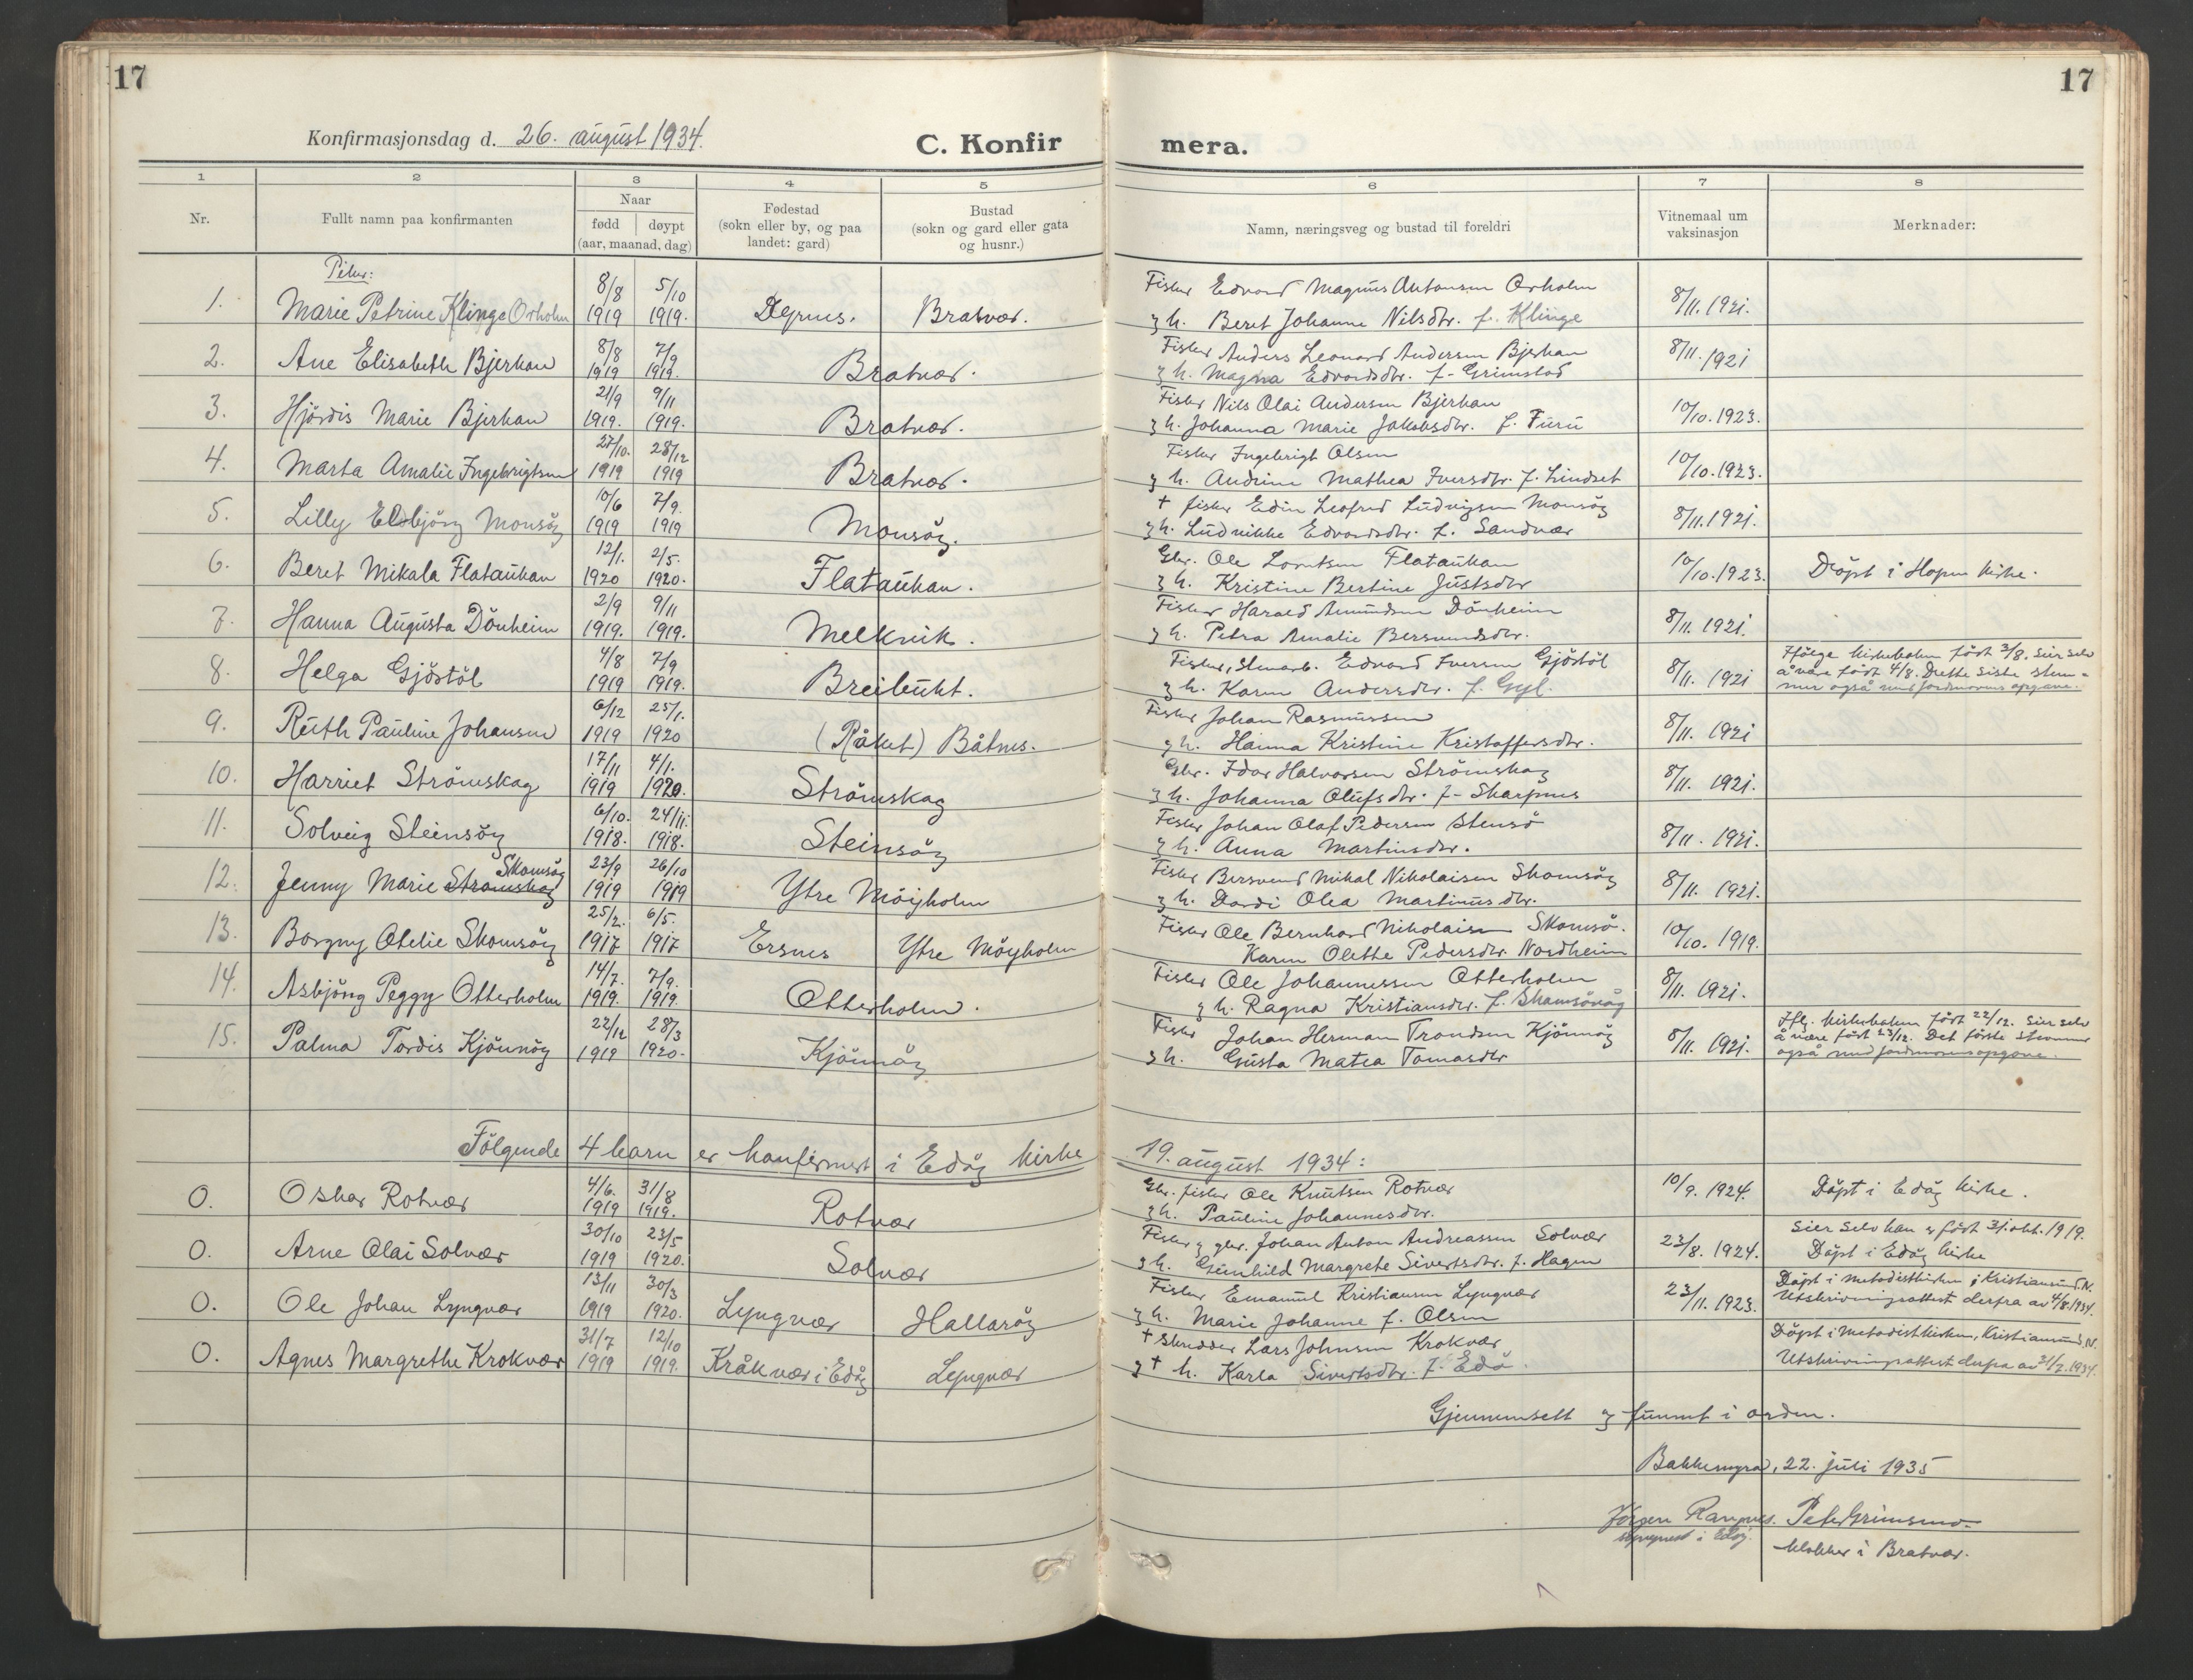 17
17
Konfirmasjonsdag d. 26. august 1934.
C. Konfir
mera.
1 2 3 4 5 6 7 8
Nr.
Fullt namn paa konfirmanten
Naar
fødd døypt
(aar, maanad, dag)
Fødestad
(sokn eller by, og paa
landet: gard)
Bustad
(sokn og gard eller gata
og husnr.)
Namn, næringsveg og bustad til foreldri
Vitnemaal um
vaksinasjon
Merknader:
Piker:
8/8 5/10 Fisker Edvard Magnus Antonsen Orholm
1. Marie Petrine Klinge Orholm 1919 1919. Bratvær. og h. Beret Johanne Nilsdtr. f. Klinge 8/11. 1921.
8/8 7/9 Fisker Anders Leonard Andersen Bjerkan
2. Ane Elisabeth Bjerkan 1919 1919. Bratvær. og h. Magna Edvardsdtr. f. Grimstad 8/11. 1921
21/9 9/11 Fisker Nils Olai Andersen Bjerkan
3. Hjördis Marie Bjerkan 1919. 1919. Bratvær. og h. Johanna Marie Jakobsdtr. f. Furu 10/10. 1923.
27/10. 28/12 Fisker Ingebrigt Olsen
4. Marta Amalie Ingebrigtsen 1919 1919 Bratvær. og h. Andrine Mathea Iversdtr. f. Lindset 10/10. 1923.
10/6 7/9. † fisker Edin Leofred Ludvigsen Monsöy
5. Lilly Elbjörg Monsöy 1919 1919 Monsöy. og h. Ludvikke Edvardsdtr. f. Sandvær 8/11. 1921.
12/1. 2/5. Gbr. Ole Lorntsen Flataukan
6. Beret Mikala Flataukan 1920 1920. Flataukan. og h. Kristine Bertine Justsdtr 10/10. 1923. Döpt i Hopen kirke.
2/9 9/11 Fisker Harald Amundsen Dönheim
7. Hanna Augusta Dönheim 1919. 1919. Melkvik. og h. Petra Amalie Bersvendsdtr. 8/11. 1921.
4/8 7/9 Fisker, stenarb. Edvard Iversen Gjöstöl
8. Helga Gjöstöl 1919 1919. Breibukt. og h. Karen Andersdtr. f. Gyl. 8/11. 1921
Ifölge kirkeboken födt 3/8. Sier selv
å være födt 4/8. Dette siste stem-
mer også med jordmorens opgave.
6/12 25/1. Fisker Johan Rasmussen
9. Ruth Pauline Johansen 1919 1920 (Råket) Båtnes. og h. Hanna Kristine Kristoffersdtr. 8/11. 1921
17/11 4/1. Gbr. Idar Halvorsen Strömskag
10. Harriet Strömskag 1919 1920. Strömskag og h. Johanna Olufsdtr. f. Skarpnes 8/11. 1921.
6/10. 24/11. Fisker Johan Olaf Pedersen Stensö
11. Solveig Steinsöy 1918. 1918. Steinsöy og h. Anna Martinsdtr. 8/11. 1921.
Skomsöy 23/9 26/10 Fisker Bersvend Mikal Nikolaisen Skomsöy
12. Jenny Marie Strömskag 1919 1919 Ytre Möyholm og h. Dordi Olea Martinusdtr. 8/11. 1921.
25/2. 6/5. Fisker Ole Bernhard Nikolaisen Skomsö.
13. Borgny Otelie Skomsöy 1917 1917 Ersnes Ytre Möyholm Karen Olette Pedersdtr Nordheim 10/10. 1919.
14/7. 7/9. Fisker Ole Johannessen Otterholm
14. Asbjörg Peggy Otterholm 1919. 1919. Otterholm. og h. Ragna Kristiansdtr. f. Skamsövåg 8/11. 1921.
22/12 28/3 Fisker Johan Herman Trondsen Kjönnöy
15. Palma Tordis Kjönnöy 1919 1920. Kjönnöy og h. Gusta Matea Tomasdtr 8/11. 1921.
Iflg. kirkeboken födt 22/12. Sier selv
å være födt 23/12. Det förste stemmer
også med jordmorens opgave.
Fölgende 4 barn er konfirmert i Edöy kirke 19. august 1934:
4/6. 31/8 Gbr. fisker Ole Knutsen Rotvær
O. Oskar Rotvær 1919 1919. Rotvær og h. Pauline Johannesdtr. 10/9. 1924. Döpt i Edöy kirke.
30/10 23/5 Fisker og gbr. Johan Anton Andreassen Solvær Sier selv han er födt 31. okt. 1919.
O. Arne Olai Solvær 1919 1920. Solvær og h. Gunhild Margrete Sivertsdtr. f. Hagen 23/8. 1924. Döpt i Edöy kirke
13/11 30/3 Fisker Emanuel Kristiansen Lyngvær Döpt i metodistkirken i Kristiansund N.
O. Ole Johan Lyngvær 1919 1920. Lyngvær Hallaröy og h. Marie Johanne f. Olsen 23/11. 1923. Utskrivningsattest derfra av 4/8. 1934.
31/7 12/10 † Skredder Lars Johnsen Krokvær Döpt i metodistkirken, Kristiansund N.
O. Agnes Margrethe Krokvær 1919 1919. Kråkvær i Edöy Lyngvær og † h. Karla Sivertsdtr. f. Edö. Utskrivningsattest derfra av 31/7. 1934.
Gjennemsett og funnet i orden.
Bakkemyra, 22. juli 1935
Jörgen Peter Grimsmo
sogneprest i Edöy. klokker i Bratvær.